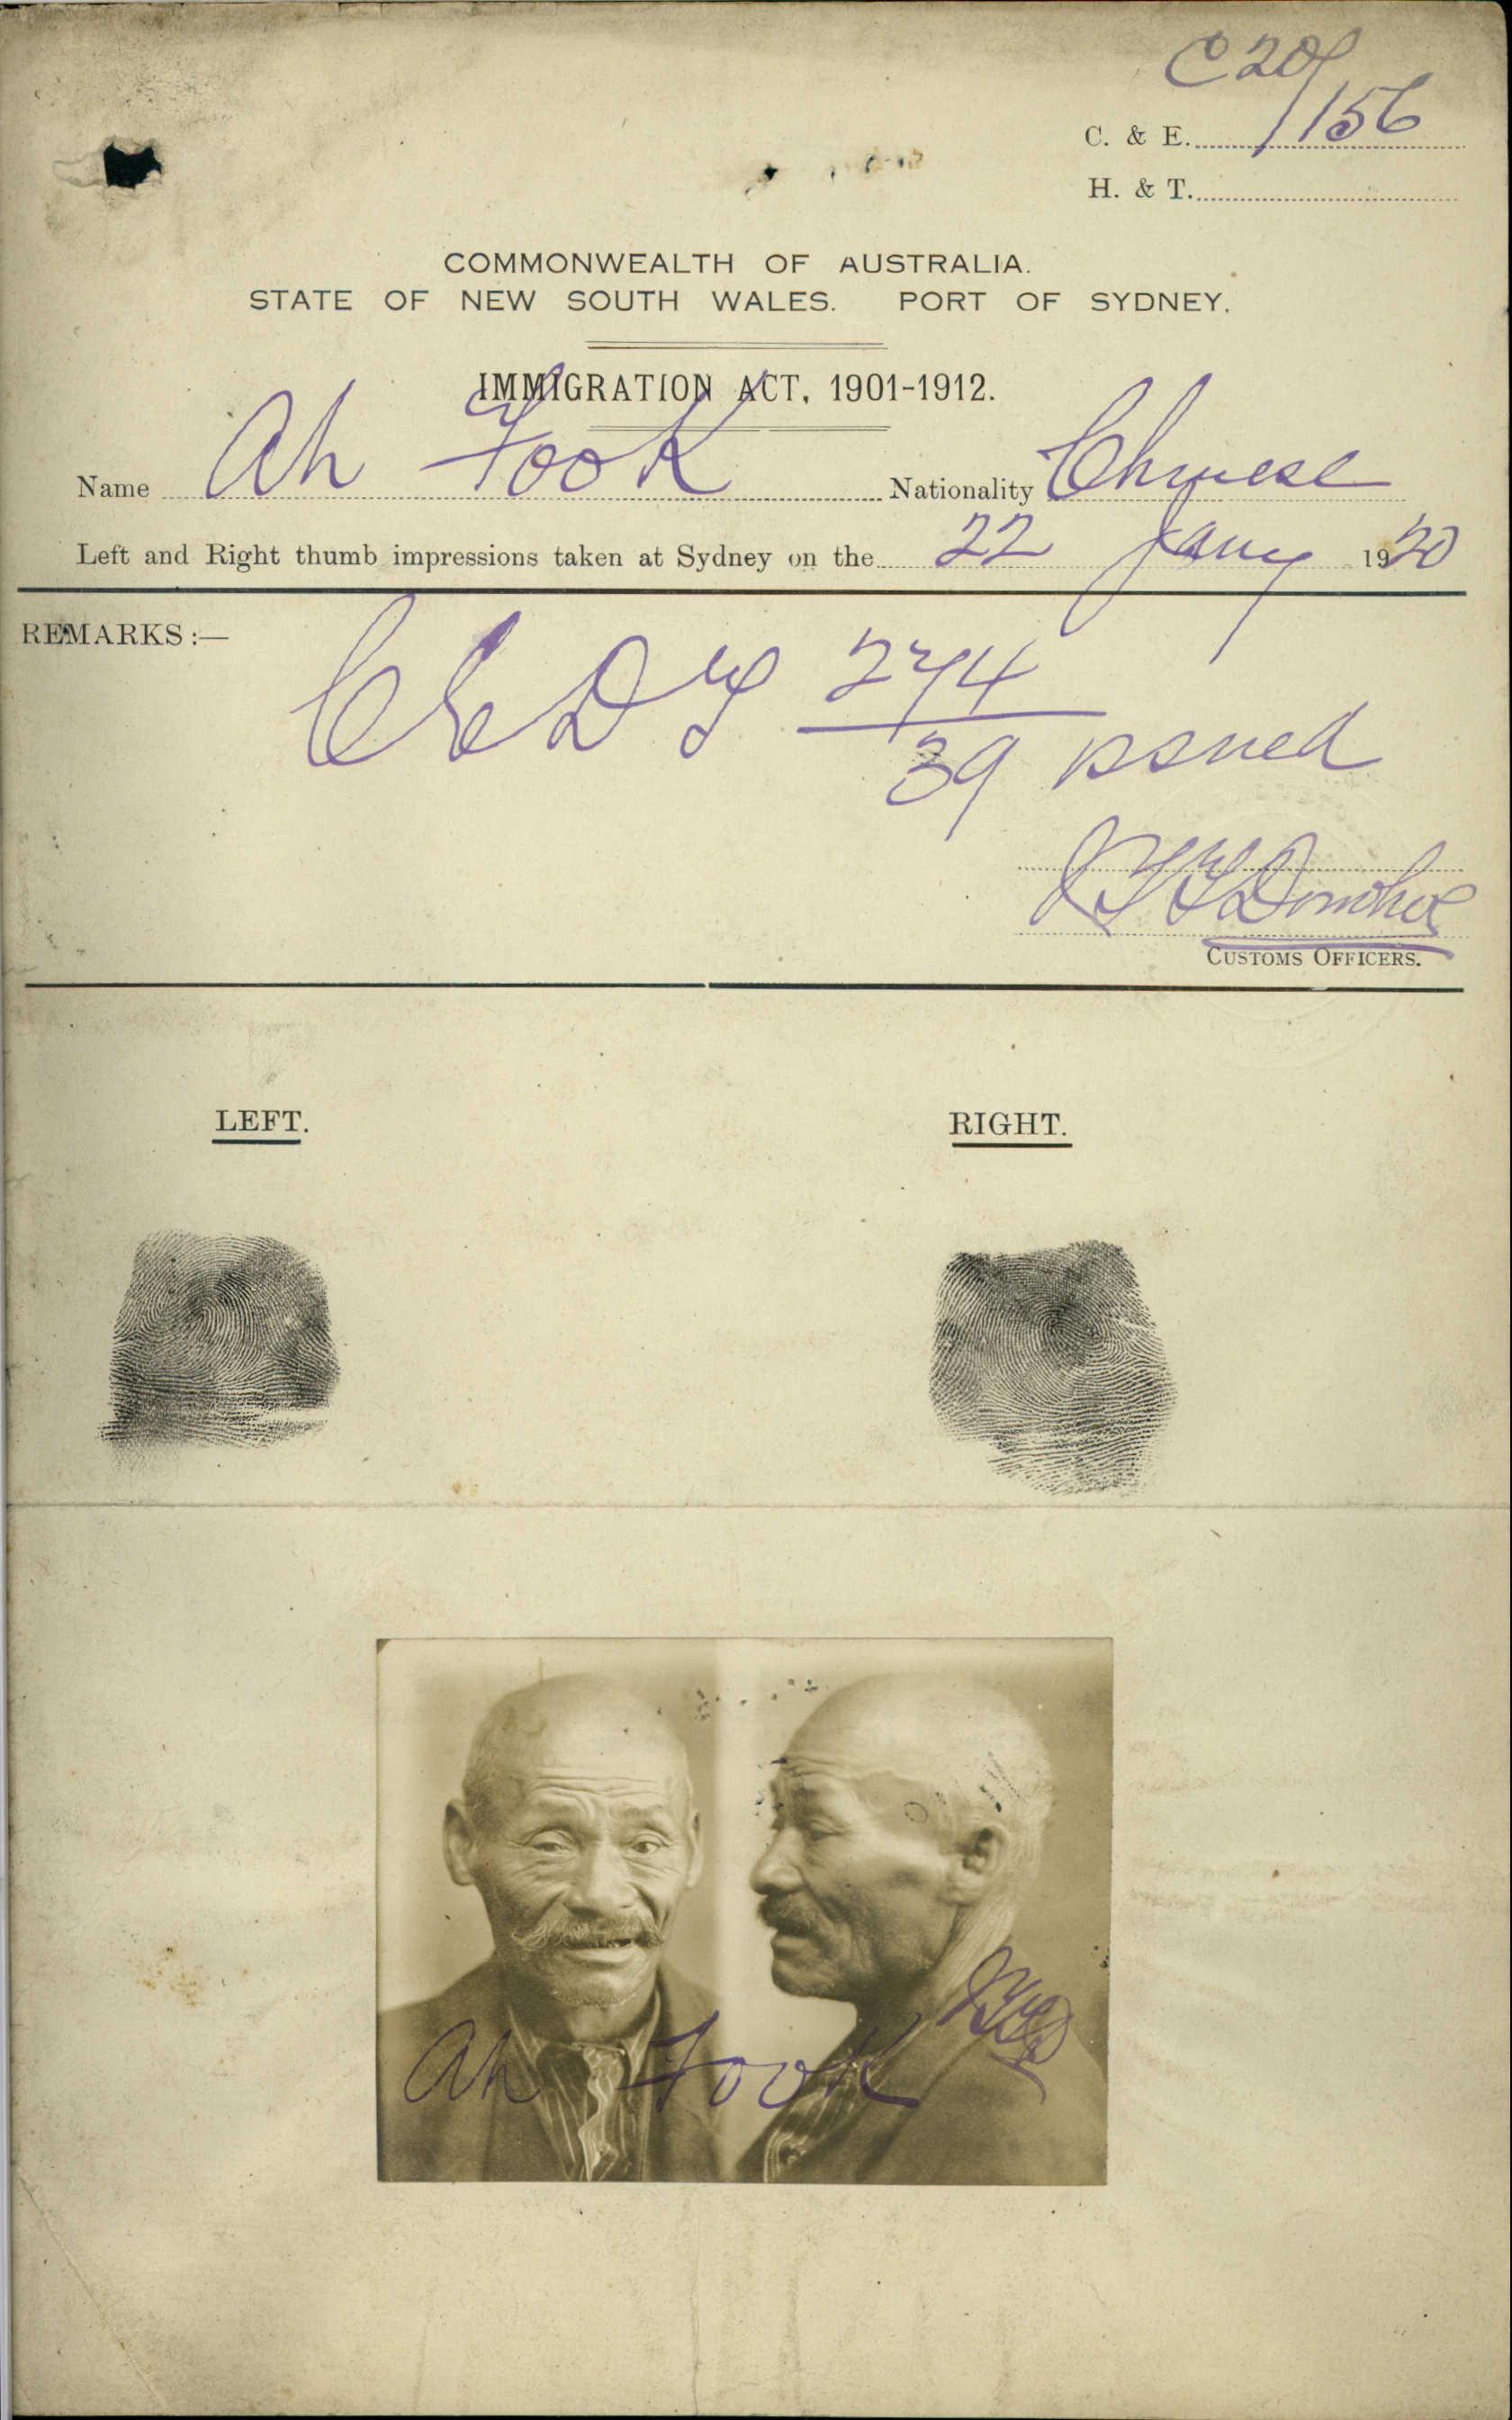 C20/156
C. & E.
H. & T.
COMMONWEALTH OF AUSTRALIA.
STATE OF NEW SOUTH WALES. PORT OF SYDNEY.
IMMIGRATION ACT, 1901-1912.
Name Ah Fook Nationality Chinese
Left and Right thumb impressions taken at Sydney on the 22 Jany 1920
REMARKS :—
CEDT 274/39 issued
Donohoe
CUSTOMS OFFICERS.
LEFT. RIGHT.
Ah Fook